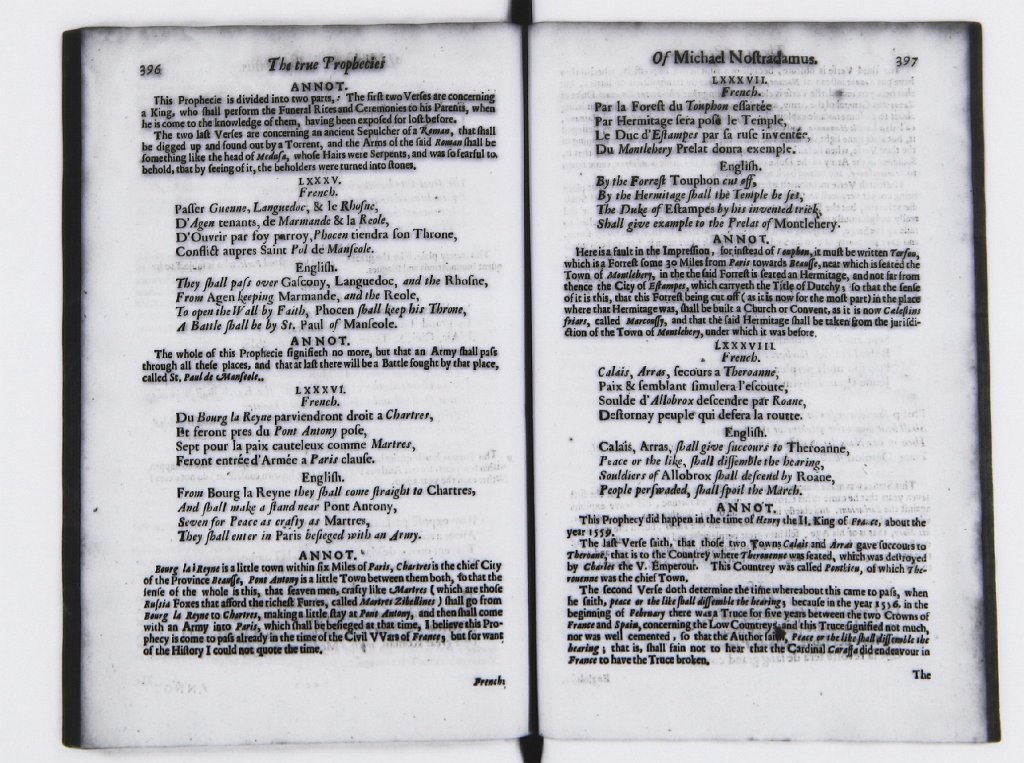 396 The true Prophecies
ANNOT.
This Prophecie is divided into two parts, : The first two Verses are concerning
a King, who shall perform the Funeral Rites and Ceremonies to his Parents, when
he is come to the knowledge of them, having been exposed for lost before.
The two last Verses are concerning an ancient Sepulcher of a Roman, that shall
be digged up and found out by a Torrent, and the Arms of the said Roman shall be
something like the head of Medusa, whose Hairs were Serpents, and was so fearful to
behold, that by seeing of it, the beholders were turned into stones.
LXXXV.
French.
Passer Guenne, Languedoc, & le Rhosne,
D'Agen tenants, de Marmande & la Reole,
D'Ouvrir par foy parroy, Phocen tiendra son Throne,
Conflict aupres Saint Pol de Manseole.
English.
They shall pass over Gascony, Languedoc, and the Rhosne,
From Agen keeping Marmande, and the Reole,
To open the Wall by Faith, Phocen shall keep his Throne,
A Battle shall be by St. Paul of Manseole.
ANNOT.
The whole of this Prophecie signifieth no more, but that an Army shall pass
through all these places, and that at last there will be a Battle fought by that place,
called St. Paul de Manseole.
LXXXVI.
French.
Du Bourg la Reyne parviendront droit a Chartres,
Et feront pres du Pont Antony pose,
Sept pour la paix cauteleux comme Martres,
Feront entrée d'Armée a Paris clause.
English.
From Bourg la Reyne they shall come straight to Chartres,
And shall make a stand near Pont Antony,
Seven for Peace as crafty as Martres,
They shall enter in Paris besieged with an Army.
ANNOT.
Bourg la Reyne is a little town within six Miles of Paris, Chartres is the chief City
of the Province Beausse, Pont Antony is a little Town between them both, so that the
sense of the whole is this, that seaven men, crafty like Martres (which are those
Russia Foxes that afford the richest Furres, called Martres Zibellines) shall go from
Bourg la Reyne to Chartres, making a little stay at Pont Antony, and then shall come
with an Army into Paris, which shall be besieged at that time, I believe this Pro-
phecy is come to pass already in the time of the Civil VVars of France; but for want
of the History I could not quote the time.
French:
Of Michael Nostradamus. 397
LXXXVII.
French.
Par la Forest du Touphon essartée
Par Hermitage sera posé le Temple,
Le Duc d'Estampes par sa ruse inventée,
Du Montlehery Prelat donra exemple.
English.
By the Forrest Touphon cut off,
By the Hermitage shall the Temple be set,
The Duke of Estampes by his invented trick,
Shall give example to the Prelat of Montlehery.
ANNOT.
Here is a fault in the Impression, for instead of Touphon, it must be written Torfou,
which is a Forrest some 30 Miles from Paris towards Beausse, near which is seated the
Town of Montlehery, in the the said Forrest is seated an Hermitage, and not far from
thence the City of Estampes, which carryeth the Title of Dutchy; so that the sense
of it is this, that this Forrest being cut off (as it is now for the most part) in the place
where that Hermitage was, shall be built a Church or Convent, as it is now Calestins
friars, called Marcoussy, and that the said Hermitage shall be taken from the jurisdi-
ction of the Town of Montlehery, under which it was before.
LXXXVIII.
French.
Calais, Arras, secours a Theroanne,
Paix & semblant simulera l'escoute,
Soulde d'Allobrox descendre par Roane,
Destornay peuple qui defera la routte.
English.
Calais, Arras, shall give succours to Theroanne,
Peace or the like, shall dissemble the hearing,
Souldiers of Allobrox shall descend by Roane,
People perswaded, shall spoil the March.
ANNOT.
This Prophecy did happen in the time of Henry the II. King of France, about the
year 1559.
The last Verse saith, that those two Towns Calais and Arras gave succours to
Theroane, that is to the Countrey where Therouenne was seated, which was destroyed
by Charles the V. Emperour. This Countrey was called Ponthieu, of which The-
rouenne was the chief Town.
The second Verse doth determine the time whereabout this came to pass, when
he saith, peace or the like shall dissemble the hearing; because in the year 1556. in the
beginning of February there was a Truce for five years between the two Crowns of
France and Spain, concerning the Low Countreys, and this Truce signified not much,
nor was well cemented, so that the Author saith, Peace or the like shall dissemble the
hearing; that is, shall fain not to hear that the Cardinal Caraffa did endeavour in
France to have the Truce broken.
The